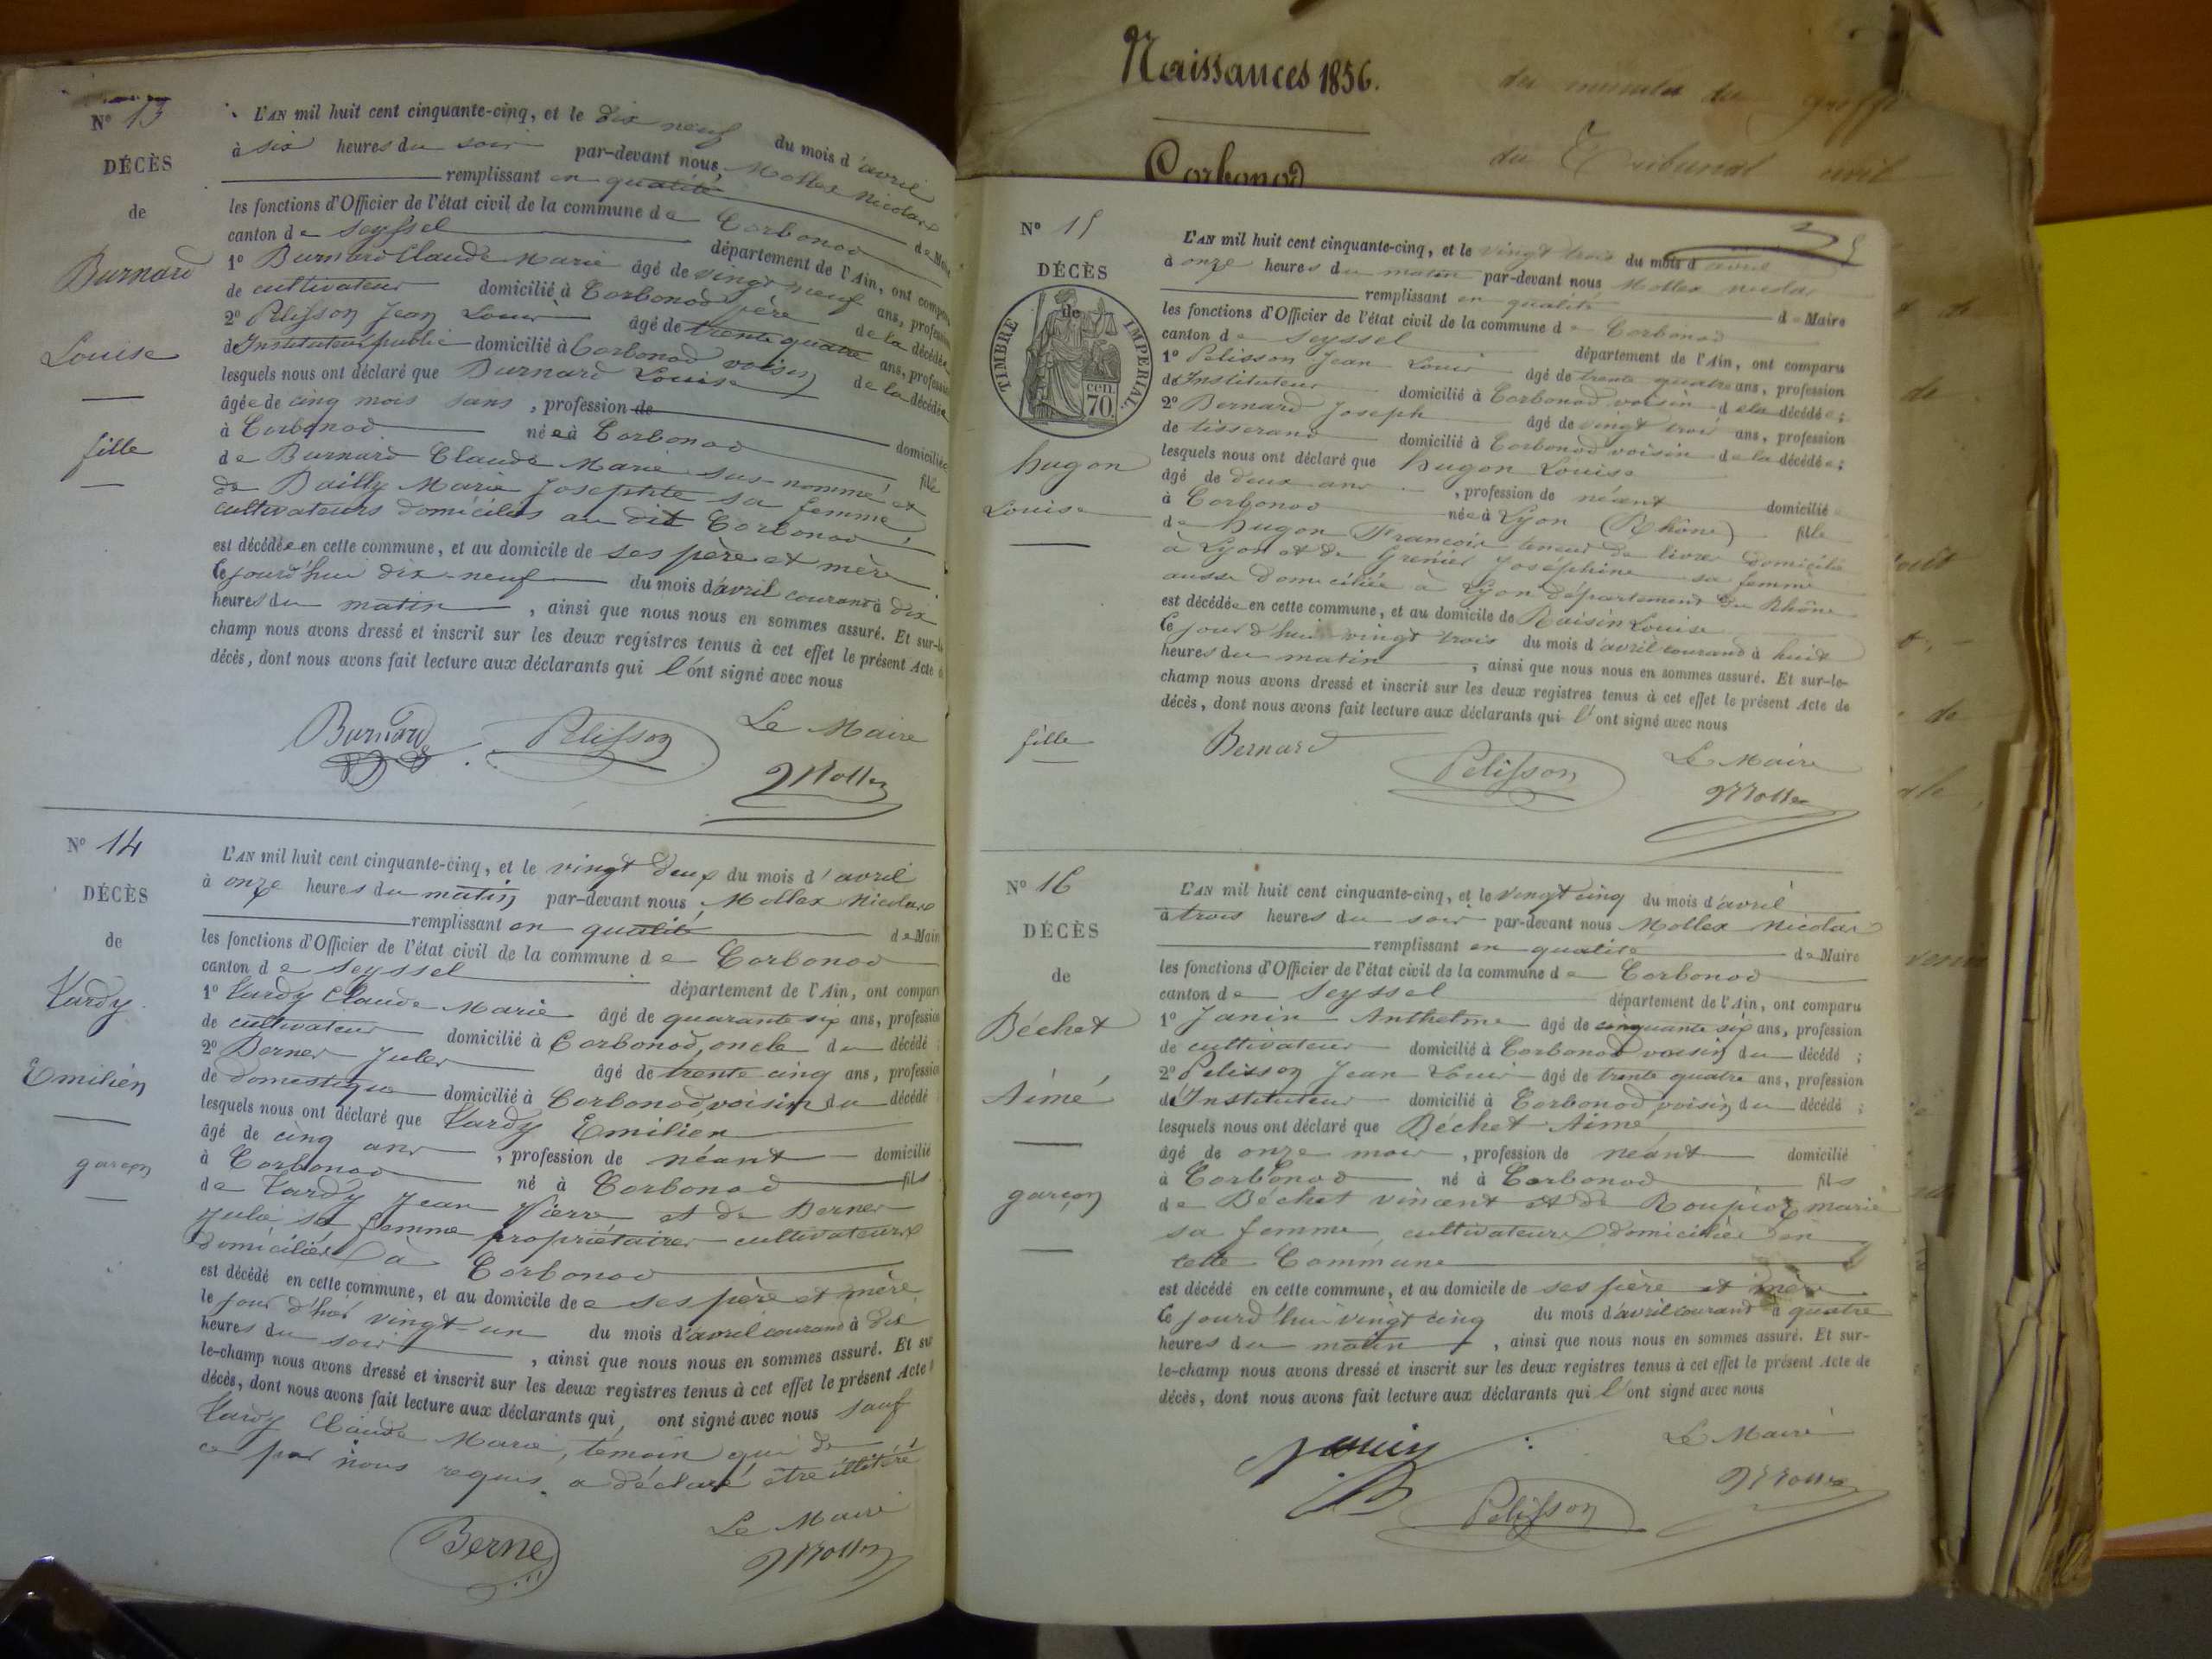 Naissances 1856.
Corbonod
du greffe
du Tribunal civil
Nº 13
DÉCÈS
de
Burnard
Louise
fille
L'AN mil huit cent cinquante-cinq, et le dix neuf du mois d'avril
à six heures du soir par-devant nous, Mollex Nicolas
remplissant en qualité de Maire
les fonctions d'Officier de l'état civil de la commune de Corbonod
canton de Seyssel département de l'Ain, ont comparu
1º Burnard Claude Marie âgé de vingt neuf ans, profession
de cultivateur domicilié à Corbonod père de la décédée
2º Pelisson Jean Louis âgé de trente quatre ans, profession
d'Instituteur public domicilié à Corbonod voisin de la décédée
lesquels nous ont déclaré que Burnard Louise
âgée de cinq mois sans, profession de domiciliée
à Corbonod née à Corbonod fille
de Burnard Claude Marie sus-nommé et
de Bailly Marie Josephte sa femme
cultivateurs domiciliés au dit Corbonod
est décédée en cette commune, et au domicile de ses père et mère
Cejourd'hui dix-neuf du mois d'avril courant à dix
heures du matin, ainsi que nous nous en sommes assuré. Et sur-le-
champ nous avons dressé et inscrit sur les deux registres tenus à cet effet le présent Acte de
décès, dont nous avons fait lecture aux déclarants qui l'ont signé avec nous
Burnard Pelisson Le Maire
Mollex
Nº 14
DÉCÈS
de
Tardy
Emilien
garçon
L'AN mil huit cent cinquante-cinq, et le vingt deux du mois d'avril
à onze heures du matin par-devant nous, Mollex Nicolas
remplissant en qualité de Maire
les fonctions d'Officier de l'état civil de la commune de Corbonod
canton de Seyssel département de l'Ain, ont comparu
1º Tardy Claude Marie âgé de quarante six ans, profession
de cultivateur domicilié à Corbonod, oncle du décédé
2º Berner Jules âgé de trente cinq ans, profession
de domestique domicilié à Corbonod voisin du décédé
lesquels nous ont déclaré que Tardy Emilien
âgé de cinq ans, profession de néant domicilié
à Corbonod né à Corbonod fils
de Tardy Jean Pierre et de Berner
Julie, sa femme propriétaires cultivateurs
domiciliés à Corbonod
est décédé en cette commune, et au domicile de ses père et mère
le jour d'hier vingt-un du mois d'avril courant à dix
heures du soir, ainsi que nous nous en sommes assuré. Et sur
le-champ nous avons dressé et inscrit sur les deux registres tenus à cet effet le présent Acte
décès, dont nous avons fait lecture aux déclarants qui, ont signé avec nous sauf
Tardy Claude Marie, témoin qui de
ce par nous requis, a déclaré être illitéré
Berne Le Maire
Mollex
Nº 15
DÉCÈS
de
TIMBRE IMPERIAL.
cen
70
hugon
Louise
fille
L'AN mil huit cent cinquante-cinq, et le vingt trois du mois d'avril
à onze heures du matin par-devant nous Mollex Nicolas
remplissant en qualité de Maire
les fonctions d'Officier de l'état civil de la commune de Corbonod
canton de Seyssel département de l'Ain, ont comparu
1º Pelisson Jean Louis âgé de trente quatre ans, profession
d'Instituteur domicilié à Corbonod voisin de la décédée;
2º Bernard Joseph âgé de vingt trois ans, profession
de tisserand domicilié à Corbonod voisin de la décédée;
lesquels nous ont déclaré que hugon Louise
âgé de deux ans, profession de néant domicilié
à Corbonod née à Lyon (Rhône) fille
de hugon François teneur de livres domicilié
à Lyon et de Grenier Joséphine sa femme
aussi domiciliée à Lyon département du Rhône
est décédée en cette commune, et au domicile de Raisin Louise
Cejourd'hui vingt trois du mois d'avril courant à huit
heures du matin, ainsi que nous nous en sommes assuré. Et sur-le-
champ nous avons dressé et inscrit sur les deux registres tenus à cet effet le présent Acte de
décès, dont nous avons fait lecture aux déclarants qui l'ont signé avec nous
Bernard Pelisson Le Maire
Mollex
Nº 16
DÉCÈS
de
Béchet
Aimé
garçon
L'AN mil huit cent cinquante-cinq, et le vingt cinq du mois d'avril
à trois heures du soir par-devant nous Mollex Nicolas
remplissant en qualité de Maire
les fonctions d'Officier de l'état civil de la commune de Corbonod
canton de Seyssel département de l'Ain, ont comparu
1º Janin Anthelme âgé de cinquante six ans, profession
de cultivateur domicilié à Corbonod voisin du décédé;
2º Pelisson Jean Louis âgé de trente quatre ans, profession
d'Instituteur domicilié à Corbonod, voisin du décédé;
lesquels nous ont déclaré que Béchet Aimé
âgé de onze mois, profession de néant domicilié
à Corbonod né à Corbonod fils
de Béchet vincent et de Roupioz marie
sa femme, cultivateurs domiciliés en
cette Commune
est décédé en cette commune, et au domicile de ses père et mère
Cejourd'hui vingt cinq du mois d'avril courant à quatre
heures du matin, ainsi que nous nous en sommes assuré. Et sur-
le-champ nous avons dressé et inscrit sur les deux registres tenus à cet effet le présent Acte de
décès, dont nous avons fait lecture aux déclarants qui l'ont signé avec nous
Janin Pelisson Le Maire
Mollex